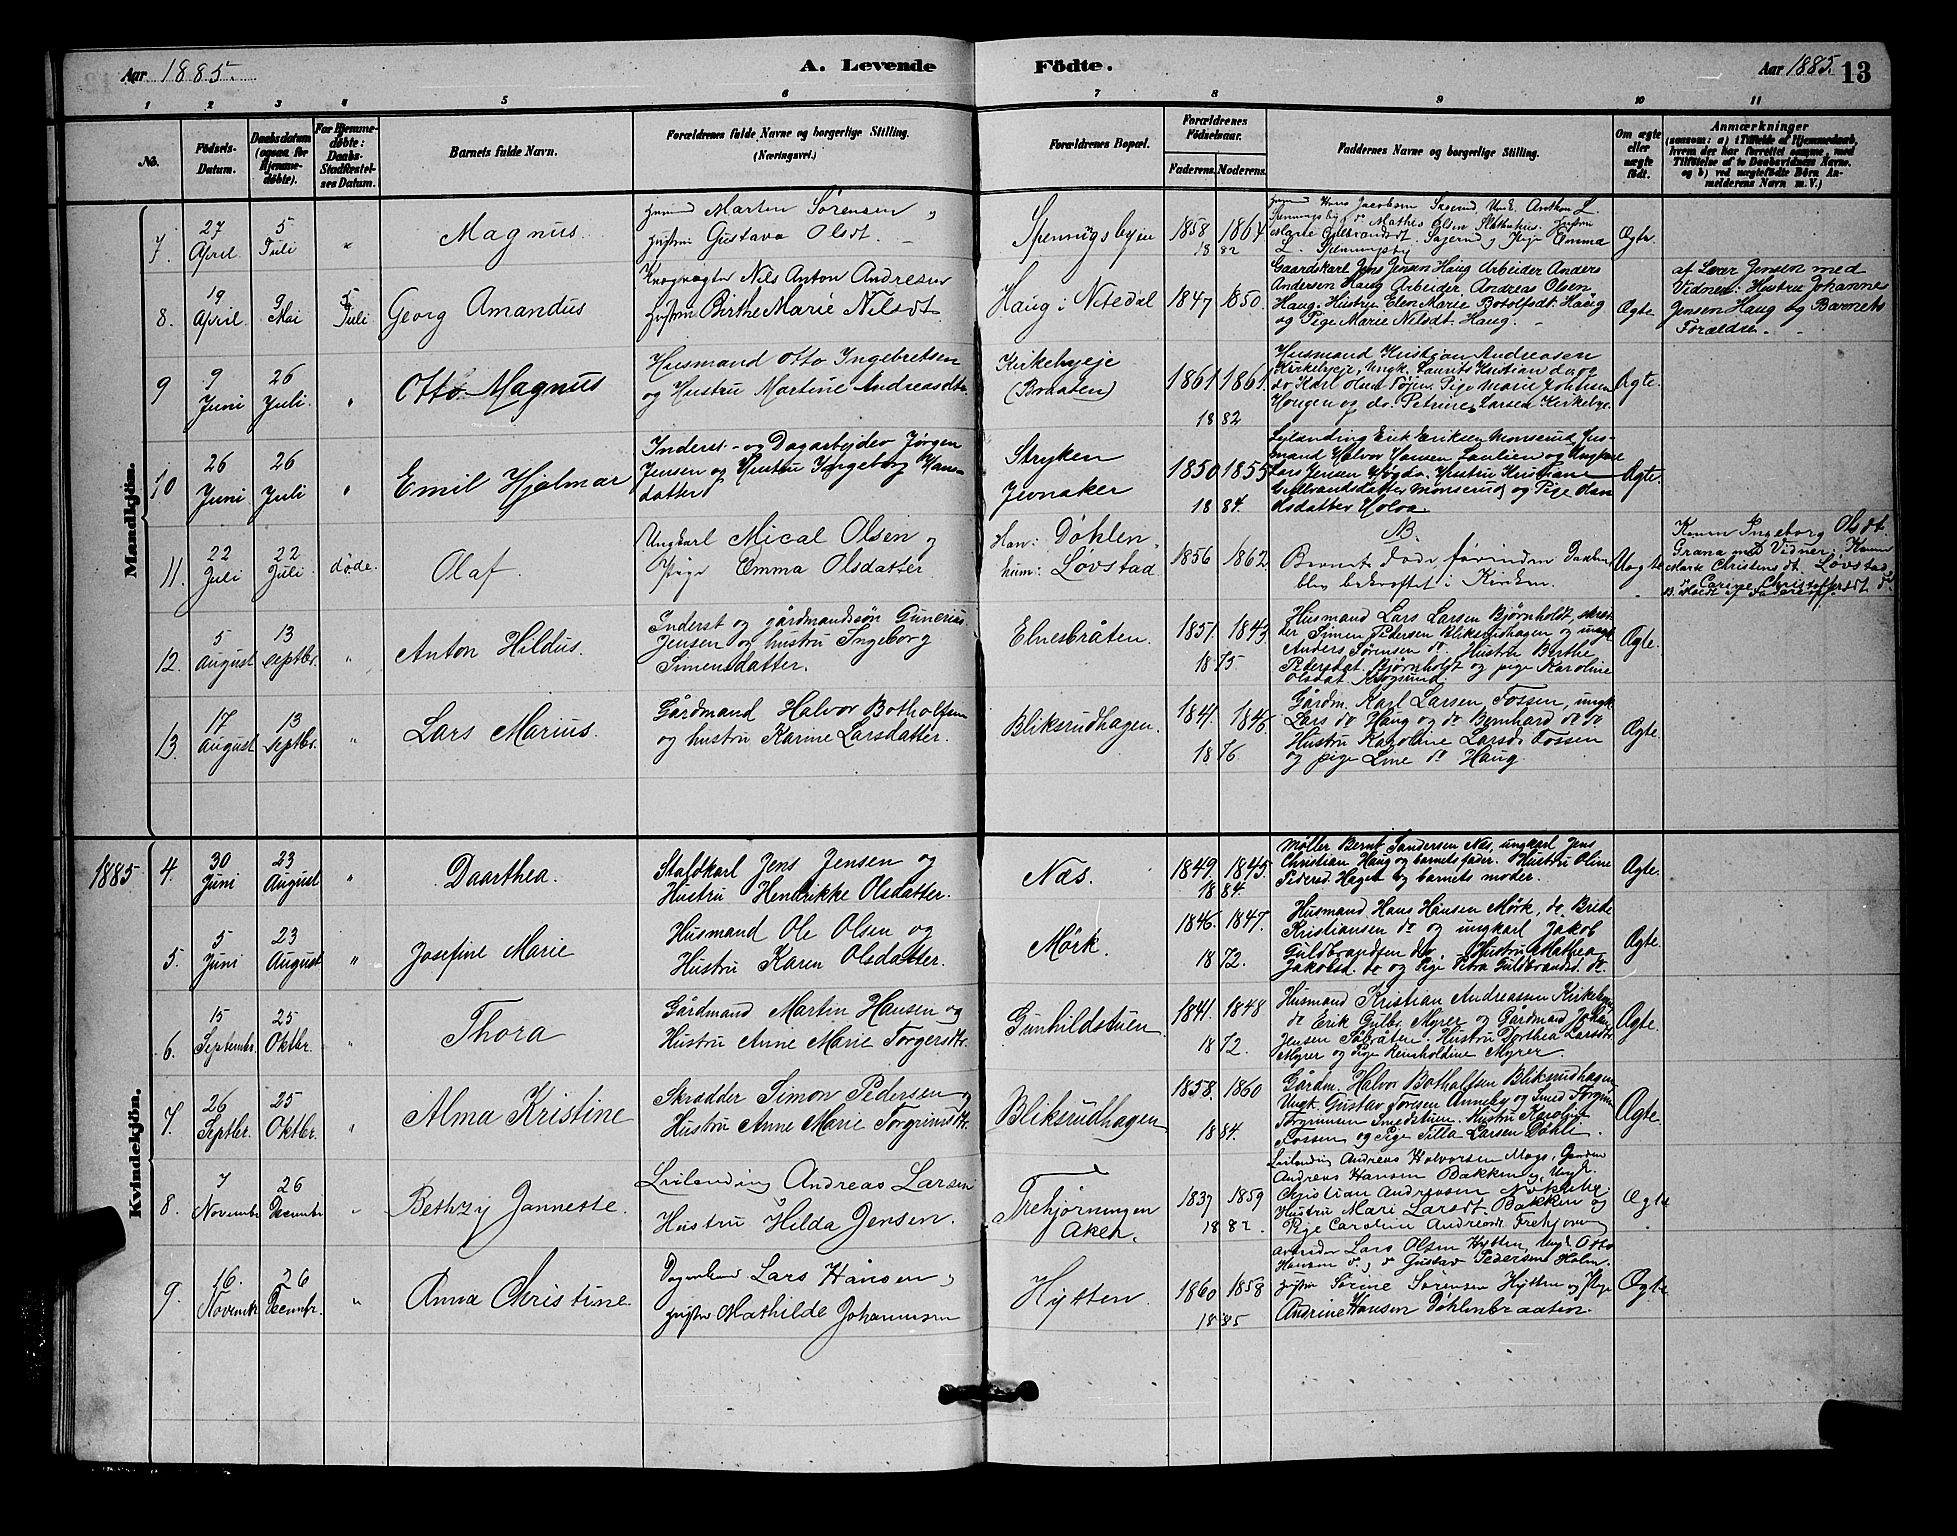 Aar 1885. A. Levende Fødte. Aar 1885. 13
1 2 3 4 5 6 7 8 9 10 11
No.
Fødsels-
Datum.
Daabsdatum
(ogsaa for
Hjemme-
døbte).
For Hjemme-
døbte:
Daabs-
Stadfæstel-
ses Datum.
Barnets fulde Navn.
Forældrenes fulde Navne og borgerlige Stilling.
(Næringsvei.)
Forældrenes Bopæl.
Forældrenes
Fødselsaar.
Faderens. Moderens.
Faddernes Navne og borgerlige Stilling.
Om ægte
eller
uægte
født.
Anmærkninger
(saasom: a) i Tilfælde af Hjemmedaab,
hvem der har forrettet samme, med
Tilføielse af to Daabsvidners Navne,
og b) ved uægtefødte Børn An-
melderens Navn m. V.)
Mandkjøn.
7.
27
April
5
Juli
"
Magnus.
Marten Sørensen
Gustava Olsdt.
Spenningsbyen
1858 1864
18 82
Ægte.
8.
19
April
3
Mai
5
Juli
Georg Amandus
Nils Anton Andresen
Birthe Marie Nilsdt
Haug i Nitedal
1847 1850.
Gaardskarl Jens Jensen Haug Arbeider Anders
Andersen Haug Arbeider Andreas Olsen
Haug. Hustru Elen Marie Botolfsdt. Haug
og Pige Marie Nilsdt. Haug.
Ægte
af Jensen med
Vidner: Hustru Johanne
Jensen Haug og Barnets
Forældre.
9
9
Juni
26
Juli.
"
Otto Magnus
Husmand Otto Ingebretsen
og Hustru Martine Andreasdtr.
Kirkebyeje
(Braaten)
1861 1861.
18 82
Husmand Kristian Andreasen
Kirkebyeje, Ungk. Laurits Kristian do og
do Karl Olsen Tøjen. Pige Marie Johnsen
Hougen og do. Petrine Larsen Kirkebye.
Ægte.
10
26
Juni
26
Juli
"
Emil Hjalmar
Inderst- og Dagarbejder Jørgen
Jensen og Hustru Ingeborg Hans-
datter
Stryken
Jevnaker
1850 1855
18 84.
Lejlænding Erik Eriksen Monserud, Hus-
mand Halvor Hansen og Ungkarl
Lars Jensen Hustru Kristian
Gulbrandsdatter Monserud og Pige
Ægte.
11.
22
Juli
22
Juli
døde.
Olaf.
Ungkarl Mical Olsen
Pige Emma Olsdatter
Han: Døhlen.
hun: Løvstad
1856 1862
NB.
Barnet døde førinden Daaben
blev bekræftet i Kirken.
Uægte
Ingeborg Olsdt.
Grana med Vidner: Konen
Christensdt. Løvstad
Carine Christoffersdt
12.
5
August
13
Septbr.
"
Anton Hildus.
Inderst og gårdmandssøn Gunerius
Jensen og hustru Ingeborg
Simensdatter.
Elnesbråten.
1851. 1843.
18 75.
Husmand Lars Larsen Bjørnholdt, skræd-
der Simen Pedersen Bliksrudhagen og ungk
Anders Sørensen do. Hustru Berthe
Pedersdat. Bjørnholdt og pige Karoline
Olsdat. Krogsund.
Ægte.
13.
17
August
13
Septbr.
"
Lars Marius.
Gårdmand Halvor Botholfsen
og hustru Karine Larsdatter.
Bliksrudhagen.
1841. 1846.
18 76
Gårdm. Karl Larsen Fossen, ungk
Lars do Haug og do Bernhard do do
Hustru Karoline Larsd. Fossen
og pige Line do Haug.
Ægte.
1885
Kvindekjøn.
4.
30
Juni
23
August
"
Daarthea.
Staldkarl Jens Jensen og
Hustru Hendrikke Olsdatter.
Næs.
1849. 1845.
18 84.
Møller Bernt Sandersen Næs, ungkarl Jens
Christian Haug og barnets fader. Hustru Oline
Pedersd. Haget og barnets moder.
Ægte.
5.
5
Juni
23
August
"
Josefine Marie
Husmand Ole Olsen og
Hustru Karen Olsdatter.
Mørk.
1846. 1847.
18 72.
Husmand Hans Hansen Mørk, do. Brede
Kristiansen do og ungkarl Jakob
Guldbrandsen do, Hustru Mathea
Jakobsd. do og Pige Petra Guldbrandsd. do.
Ægte
6.
15
Septembr.
25
Oktbr.
"
Thora
Gårdmand Martin Hansen og
Hustru Anne Marie Torgersdtr.
Gunhildstuen
1841. 1848
18 72.
Husmand Kristian Andreassen Kirkebye,
do Erik Gulbr. Myrer og Gårdmand Johan
Jensen Såbråten. Hustru Dorthea Larsdtr.
Myrer og Pige Reinholdine Myrer.
Ægte.
7.
26
Septbr.
25
Oktbr.
"
Alma Kristine
Skrædder Simon Pedersen og
Hustru Anne Marie Torgrimsdtr.
Bliksrudhagen
1858. 1860
18 84.
Gårdm. Halvor Botholfsen Bliksrudhagen
Ungk. Gustav Toresen Anneby og Smed Torgrim
Torgrimsen Smedstuen. Hustru Karoline
Fossen og Pige Tilla Larsen Døhli.
Ægte.
8.
7
Novembr
26
Decembr
"
Bethzy Jannette.
Leilending Andreas Larsen
Hustru Hilda Jensen.
Trehjørningen
Aker.
1837 1859
18 82.
Leilending Andreas Halvorsen Mago,
Andreas Hansen Bakken og Ungk.
Christian Andreasen
Hustru Mari Larsdt. Bakken og
Pige Caroline Andreasdt. Trehjørning
Ægte
9.
16.
Novembr.
26
Decembr.
"
Anna Christine.
Lars Hansen
Mathilde Johannesen
Hytten.
1860 1858
18 85
Arbeider Lars Olsen Hytten, Ungk. Otto
Hansen do, do Gustav Pedersen Holm.
Sørine Sørensen Hytten og Pige
Andrine Hansen Døhlenbraaten.
Ægte